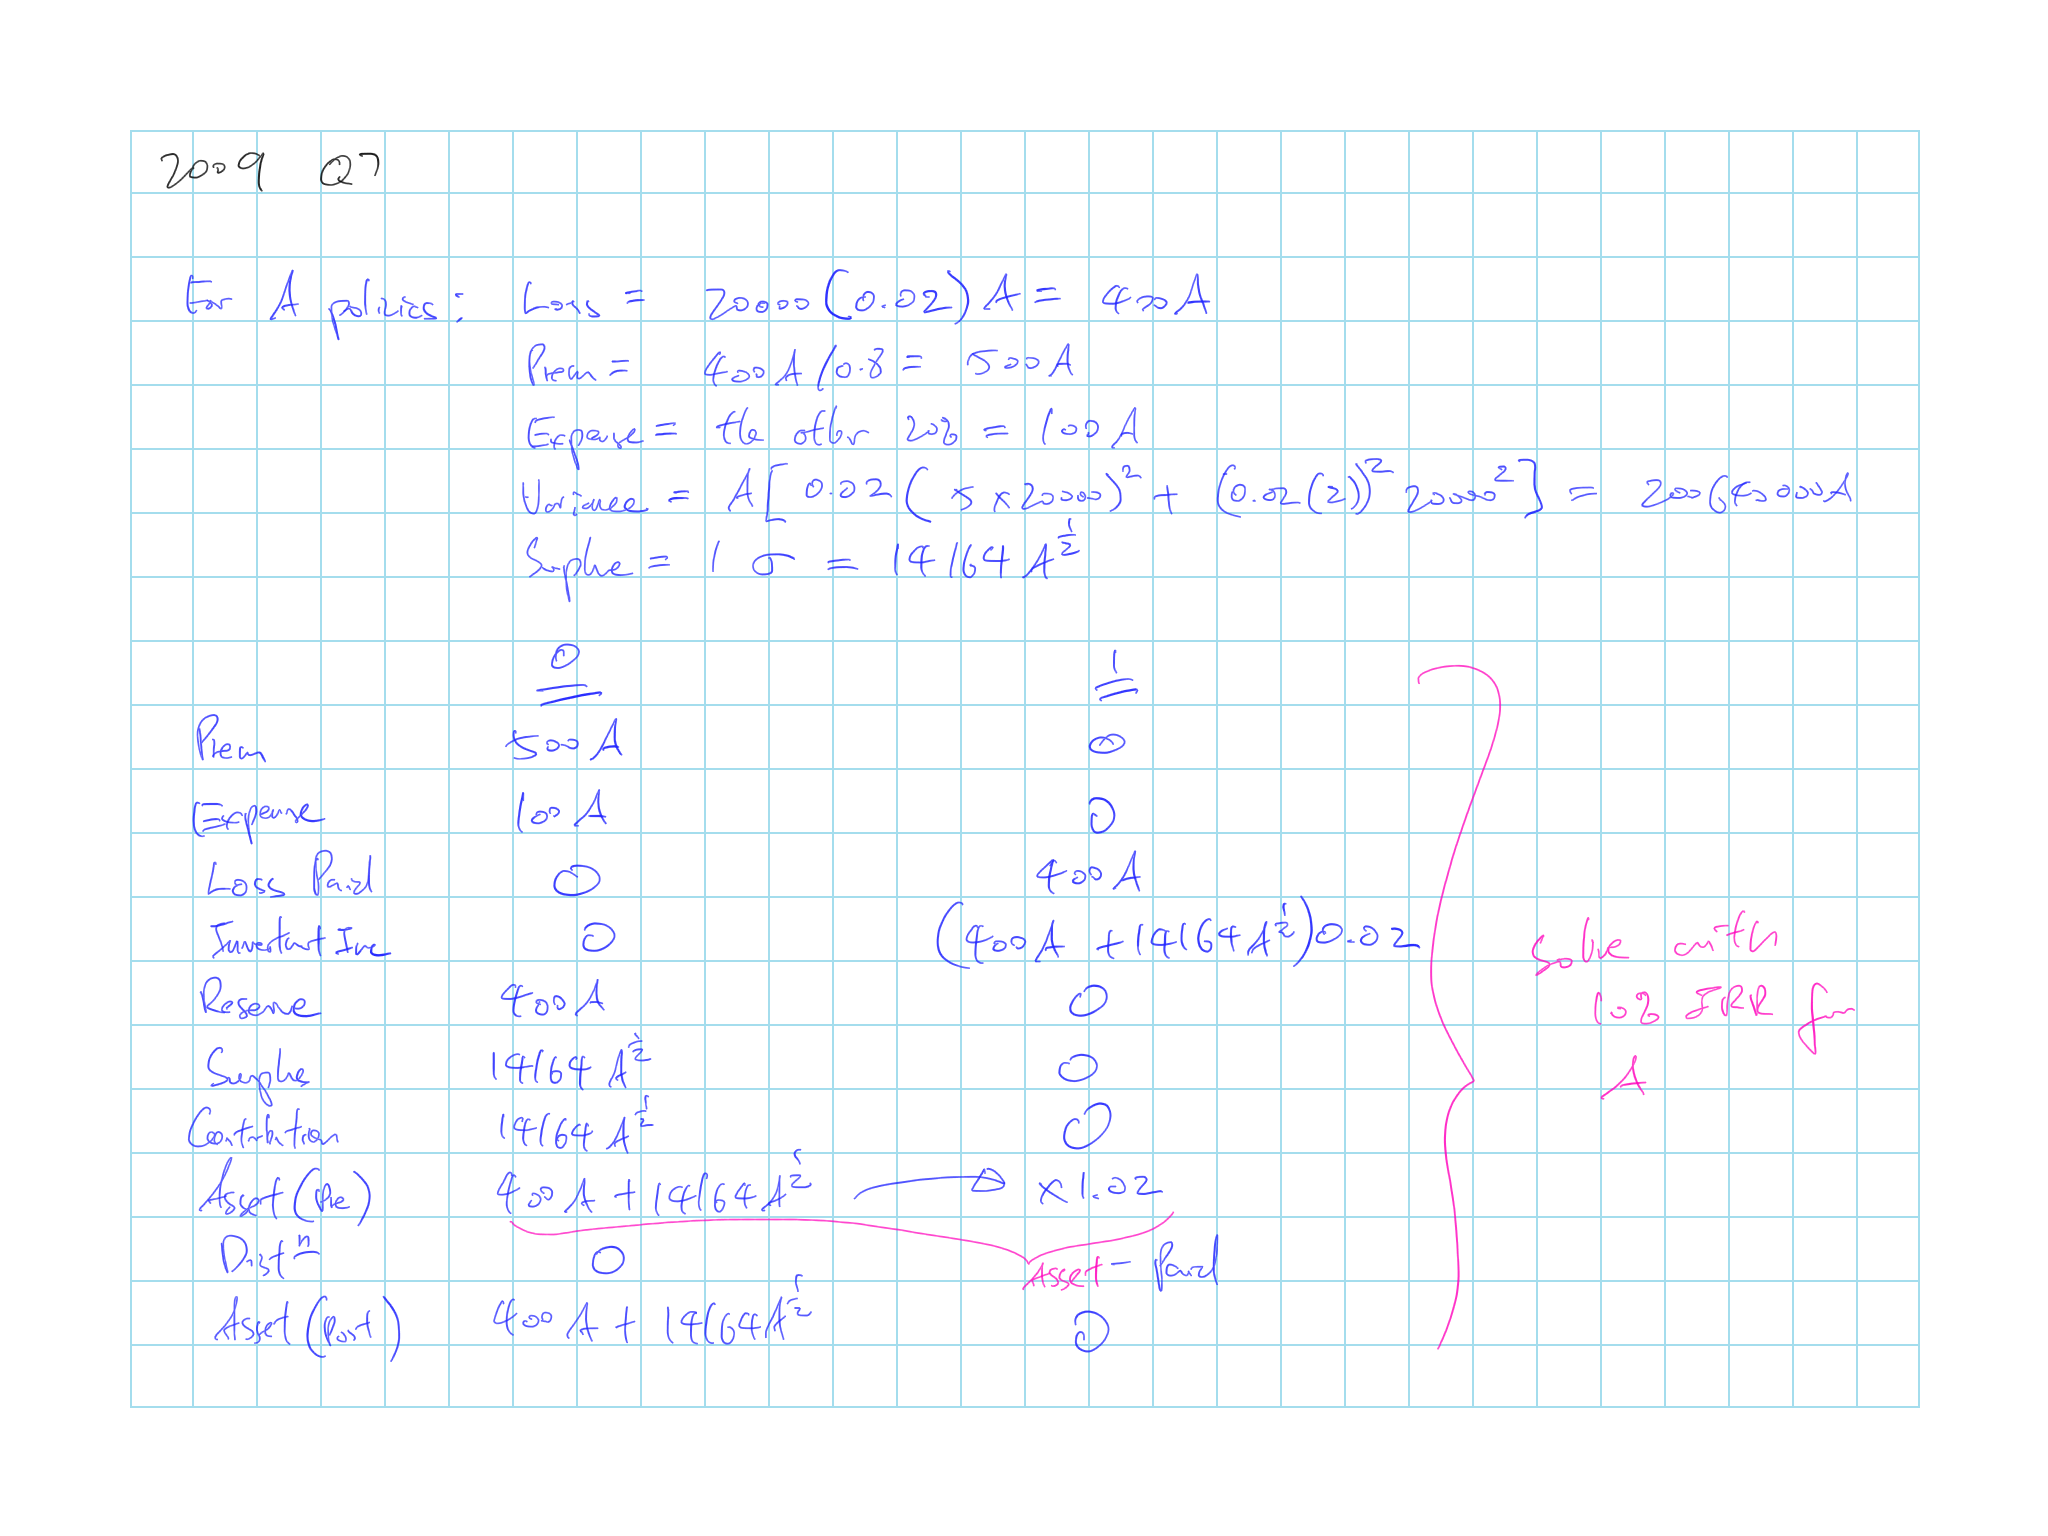 2009 Q7
For A policies: Loss = 20000(0.02)A = 400A
Prem = 400A/0.8 = 500A
Expense = the other 20% = 100A
Variance = A[0.02(5×20000)² + (0.02(2))² 20000²] = 200640000A
Surplus = 1 σ = 14164 A^½
0 1
Prem 500A 0
Expense 100A 0
Loss Paid 0 400A
Investment Inc 0 (400A + 14164A^½)0.02
Reserve 400A 0
Surplus 14164 A^½ 0
Contribution 14164 A^½ 0
Asset (Pre) 400A + 14164A^½ → ×1.02
Distⁿ 0 Asset - Paid
Asset (Post) 400A + 14164A^½ 0
Solve with
10% IRR for
A